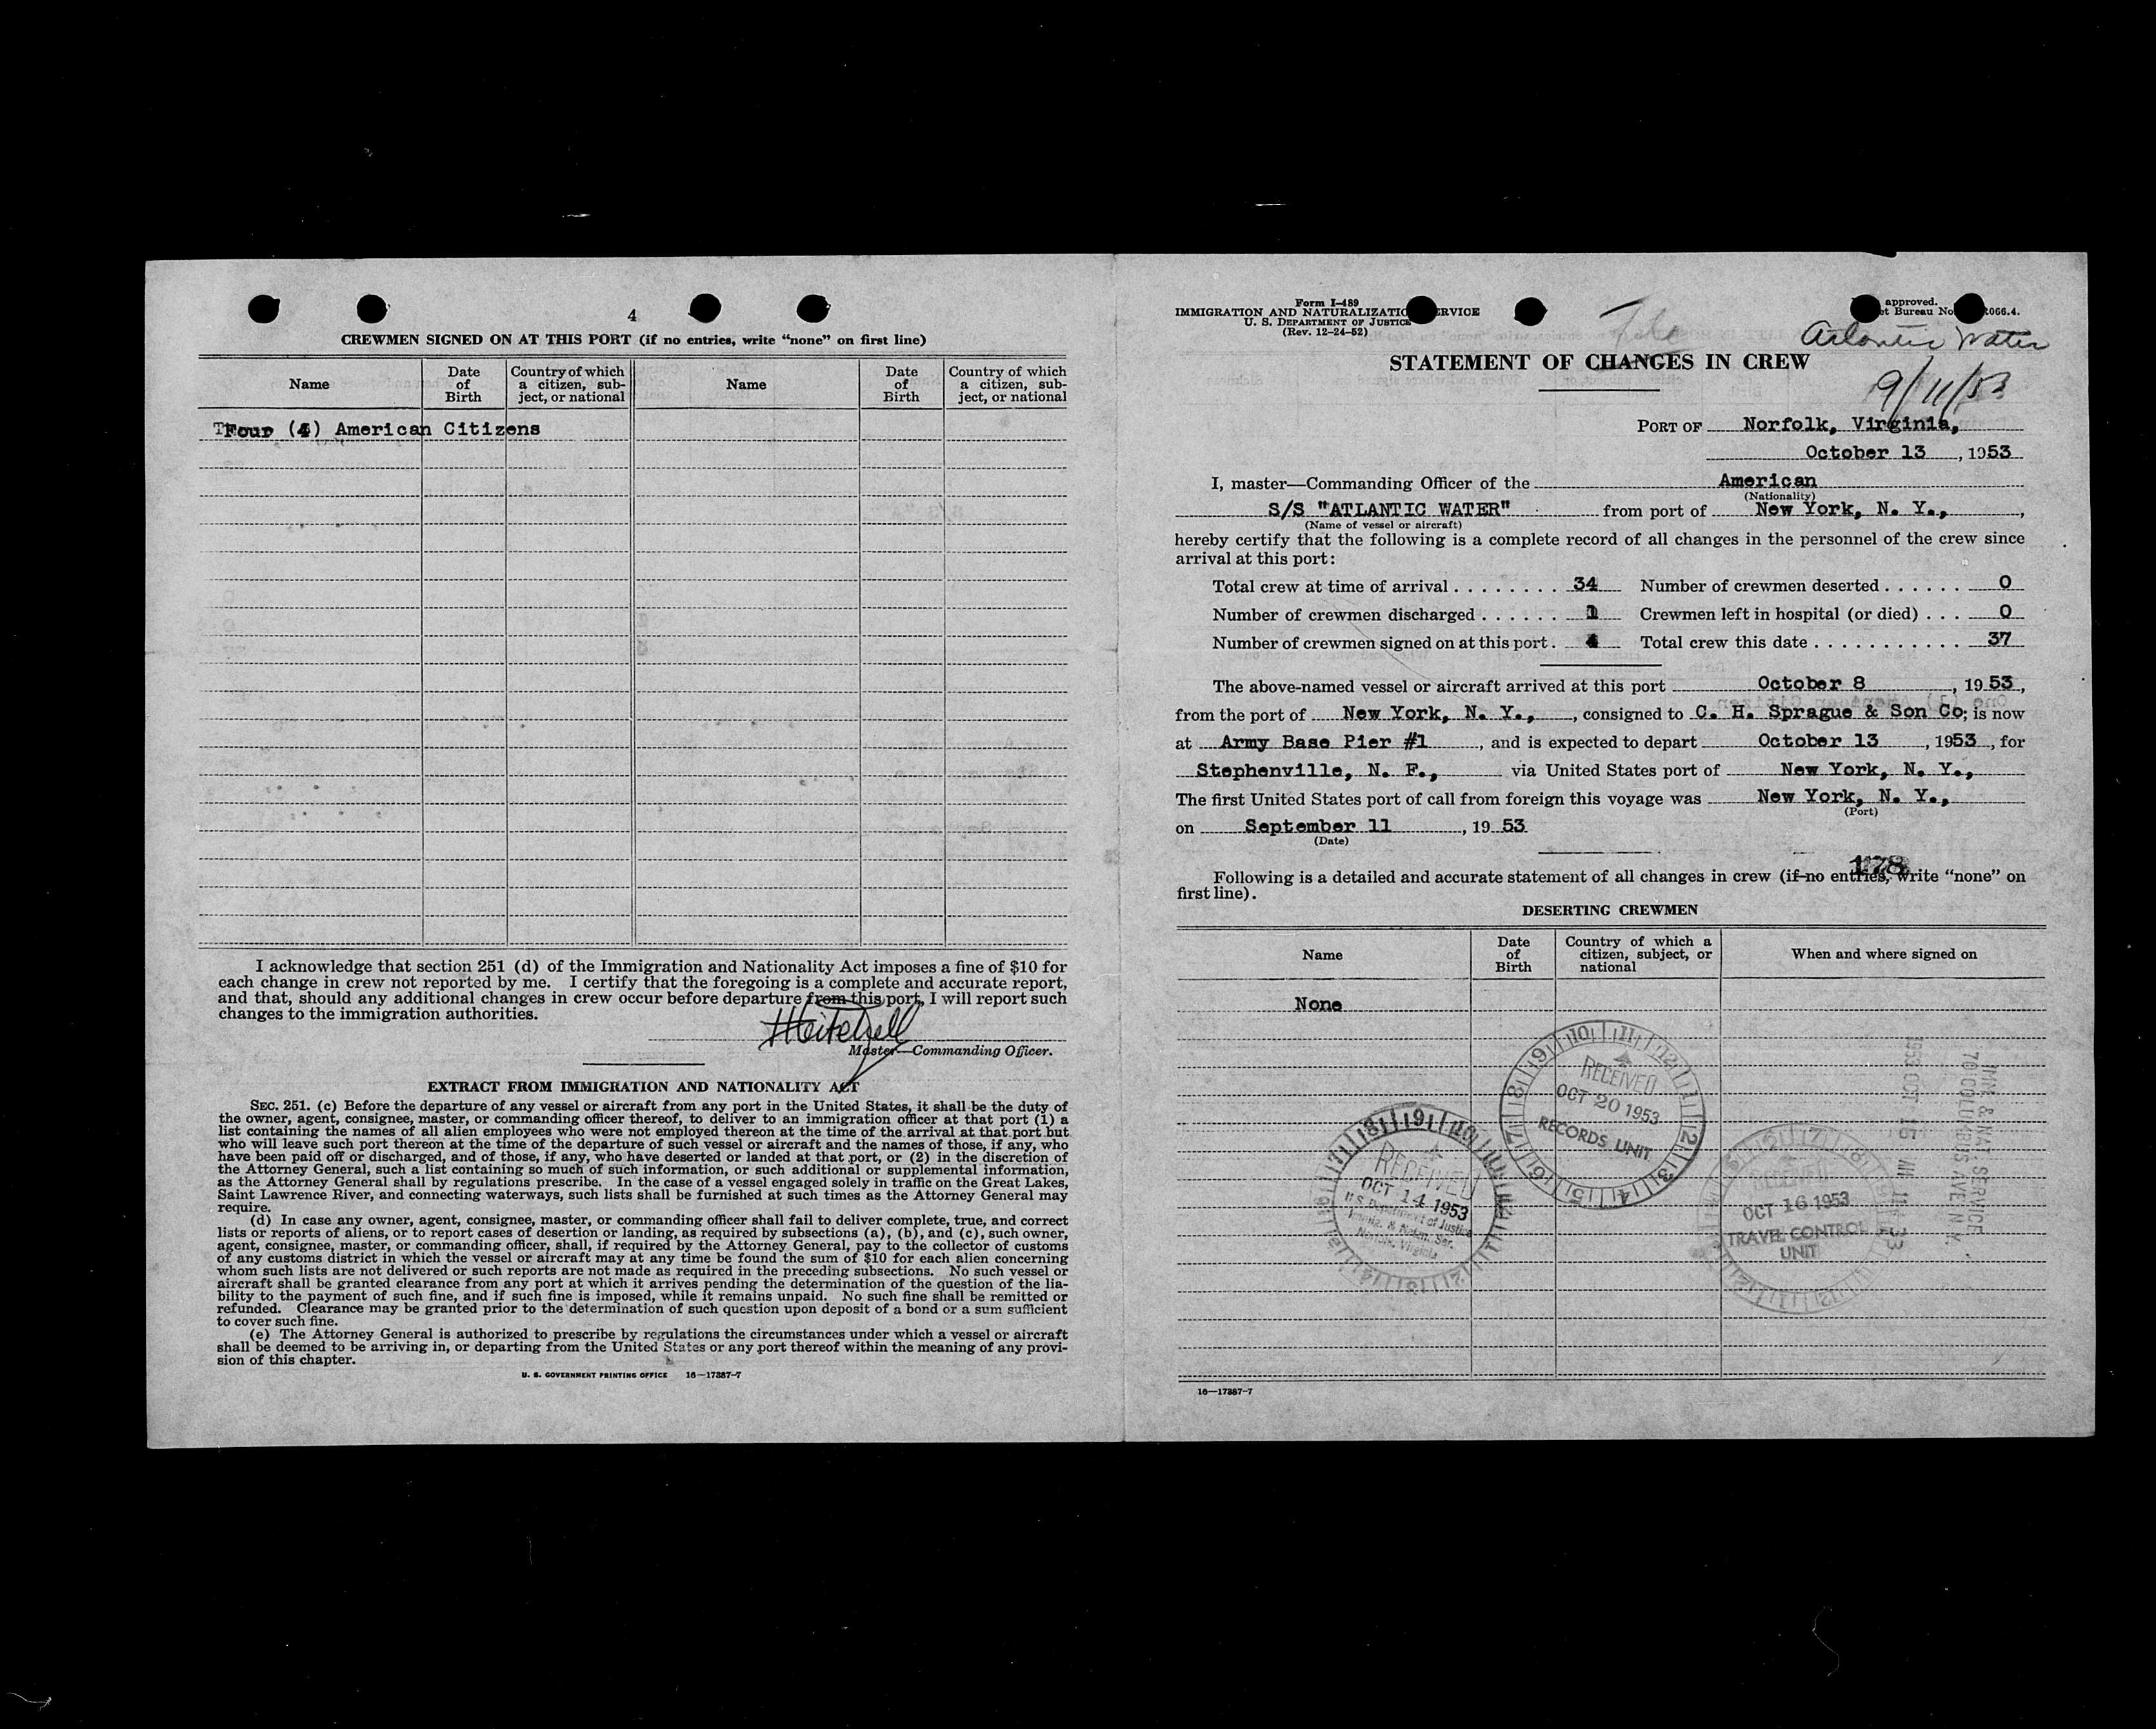 4
CREWMEN SIGNED ON AT THIS PORT (if no entries, write “none” on first line)
Name Date of Birth Country of which a citizen, subject, or national Name Date of Birth Country of which a citizen, subject, or national
Four (4) American Citizens
I acknowledge that section 251 (d) of the Immigration and Nationality Act imposes a fine of $10 for
each change in crew not reported by me. I certify that the foregoing is a complete and accurate report,
and that, should any additional changes in crew occur before departure from this port, I will report such
changes to the immigration authorities.
Master—Commanding Officer.
EXTRACT FROM IMMIGRATION AND NATIONALITY ACT
SEC. 251. (c) Before the departure of any vessel or aircraft from any port in the United States, it shall be the duty of
the owner, agent, consignee, master, or commanding officer thereof, to deliver to an immigration officer at that port (1) a
list containing the names of all alien employees who were not employed thereon at the time of the arrival at that port but
who will leave such port thereon at the time of the departure of such vessel or aircraft and the names of those, if any, who
have been paid off or discharged, and of those, if any, who have deserted or landed at that port, or (2) in the discretion of
the Attorney General, such a list containing so much of such information, or such additional or supplemental information,
as the Attorney General shall by regulations prescribe. In the case of a vessel engaged solely in traffic on the Great Lakes,
Saint Lawrence River, and connecting waterways, such lists shall be furnished at such times as the Attorney General may
require.
(d) In case any owner, agent, consignee, master, or commanding officer shall fail to deliver complete, true, and correct
lists or reports of aliens, or to report cases of desertion or landing, as required by subsections (a), (b), and (c), such owner,
agent, consignee, master, or commanding officer, shall, if required by the Attorney General, pay to the collector of customs
of any customs district in which the vessel or aircraft may at any time be found the sum of $10 for each alien concerning
whom such lists are not delivered or such reports are not made as required in the preceding subsections. No such vessel or
aircraft shall be granted clearance from any port at which it arrives pending the determination of the question of the lia-
bility to the payment of such fine, and if such fine is imposed, while it remains unpaid. No such fine shall be remitted or
refunded. Clearance may be granted prior to the determination of such question upon deposit of a bond or a sum sufficient
to cover such fine.
(e) The Attorney General is authorized to prescribe by regulations the circumstances under which a vessel or aircraft
shall be deemed to be arriving in, or departing from the United States or any port thereof within the meaning of any provi-
sion of this chapter.
U. S. GOVERNMENT PRINTING OFFICE 16—17387-7
Form I-489
IMMIGRATION AND NATURALIZATIO RVICE
U. S. DEPARTMENT OF JUSTICE
(Rev. 12-24-52)
File
approved.
et Bureau No 066.4.
Atlantic Water
9/11/53
STATEMENT OF CHANGES IN CREW
PORT OF Norfolk, Virginia,
October 13, 1953
I, master—Commanding Officer of the American
(Nationality)
S/S "ATLANTIC WATER" from port of New York, N. Y.,
(Name of vessel or aircraft)
hereby certify that the following is a complete record of all changes in the personnel of the crew since
arrival at this port:
Total crew at time of arrival . . . . . . . . 34 Number of crewmen deserted . . . . . . 0
Number of crewmen discharged . . . . . . 1 Crewmen left in hospital (or died) . . . 0
Number of crewmen signed on at this port . 4 Total crew this date . . . . . . . . . . . 37
The above-named vessel or aircraft arrived at this port October 8, 1953,
from the port of New York, N. Y., , consigned to C. H. Sprague & Son Co; is now
at Army Base Pier #1, and is expected to depart October 13, 1953, for
Stephenville, N. F., via United States port of New York, N. Y.,
The first United States port of call from foreign this voyage was New York, N. Y.,
(Port)
on September 11, 1953
(Date)
178
Following is a detailed and accurate statement of all changes in crew (if no entries, write “none” on
first line).
DESERTING CREWMEN
Name Date of Birth Country of which a citizen, subject, or national When and where signed on
None
RECEIVED
OCT 20 1953
RECORDS UNIT
RECEIVED
OCT 14 1953
U. S. Department of Justice
Immig. & Natzn. Ser.
Norfolk, Virginia
RECEIVED
OCT 16 1953
TRAVEL CONTROL
UNIT
IMM. & NAT. SERVICE
70 COLUMBUS AVE N.Y.
16—17387-7